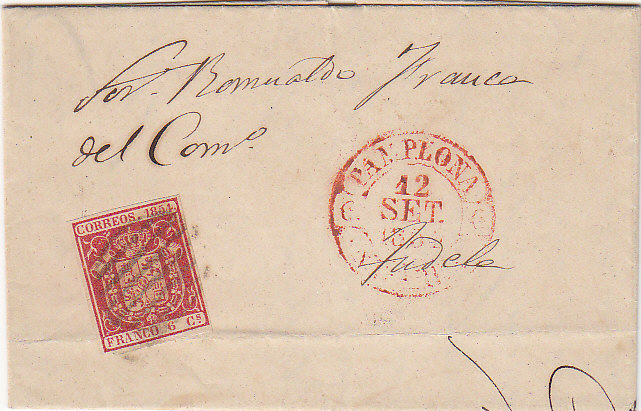 Sor. Romualdo Franca
del Comº
PAMPLONA
12
SET.
Tudela
CORREOS. 1854.
FRANCO 6 Cs